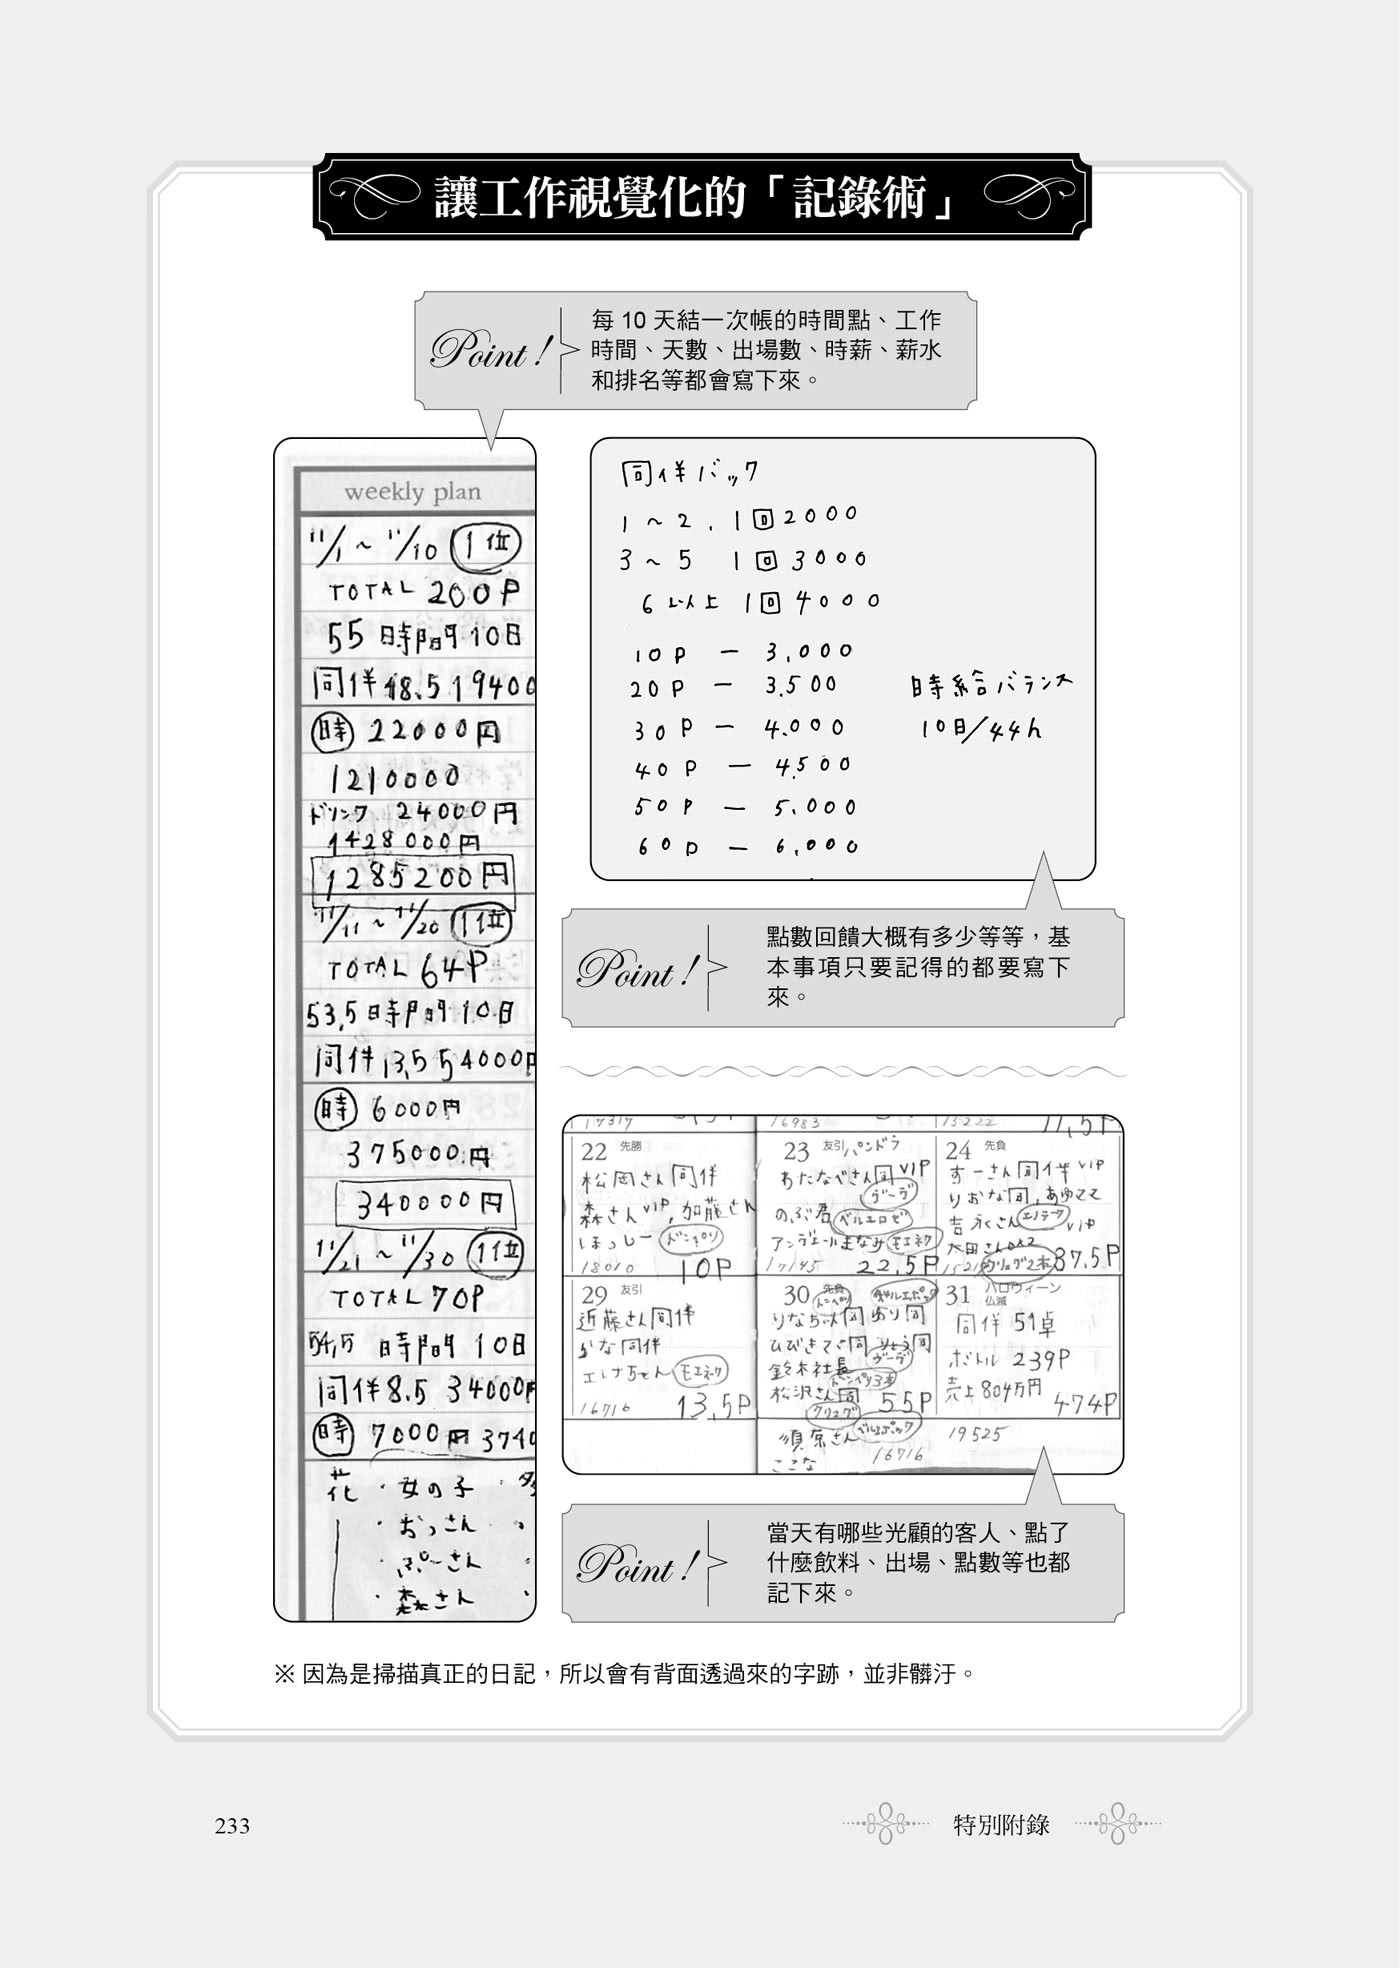 讓工作視覺化的「記錄術」
Point!
每 10 天結一次帳的時間點、工作
時間、天數、出場數、時薪、薪水
和排名等都會寫下來。
weekly plan
11/1 ~ 11/10 1位
TOTAL 200P
55時間10日
同伴48.5 19400
時 22000円
1210000
ドリンク 24000円
1428000円
1285200円
11/11 ~ 11/20 1位
TOTAL 64P
53,5時間10日
同伴13,5 54000円
時 6000円
375000円
340000円
11/21 ~ 11/30 1位
TOTAL 70P
54,5時間10日
同伴8.5 34000円
時 7000円 3740
花 ・女の子
・おっさん
・ぷーさん
・森さん
同伴バック
1~2. 1回2000
3~5 1回3000
6以上 1回4000
10P — 3,000
20P — 3.500
30P — 4.000
40P — 4.500
50P — 5.000
60P — 6,000
時給バランス
10日/44h
Point!
點數回饋大概有多少等等，基
本事項只要記得的都要寫下
來。
17317
16983
15222
17,5P
22 先勝
松岡さん同伴
森さんVIP,加藤さん
ほっしー ドンペリ
18010 10P
23 友引 パンドラ
わたなべさん同VIP
ヴーヴ
のぶ君 ベルエロゼ
アンヴェールまなみ モエネク
17145 22,5P
24 先負
すーさん同伴VIP
りおな同,あゆここ
吉永さん エノテーク VIP
太田さん
37,5P
29 友引
近藤さん同伴
かな同伴
エレナちゃん モエネク
16716 13,5P
30 先負
りなちゃん同 ゆり同
ひびきさご同 りょう同
鈴木社長 ヴーヴ
ドンペリ3本
松沢さん同 55P
クリュグ
須原さん ベルエポック
ここな 16716
31 ハロウィーン
仏滅
同伴 51卓
ボトル 239P
売上804万円
474P
19525
Point!
當天有哪些光顧的客人、點了
什麼飲料、出場、點數等也都
記下來。
※ 因為是掃描真正的日記，所以會有背面透過來的字跡，並非髒汙。
233
特別附錄